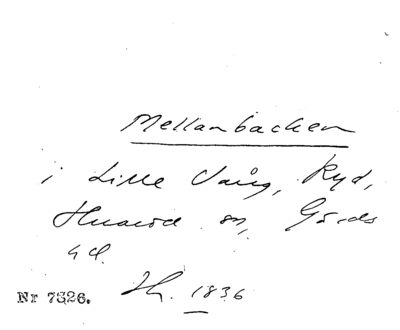 Mellanbacken
i Lille Vång, Ryd,
Huaröd sn, Gärds
hd.
Nr 7826. Jh. 1836